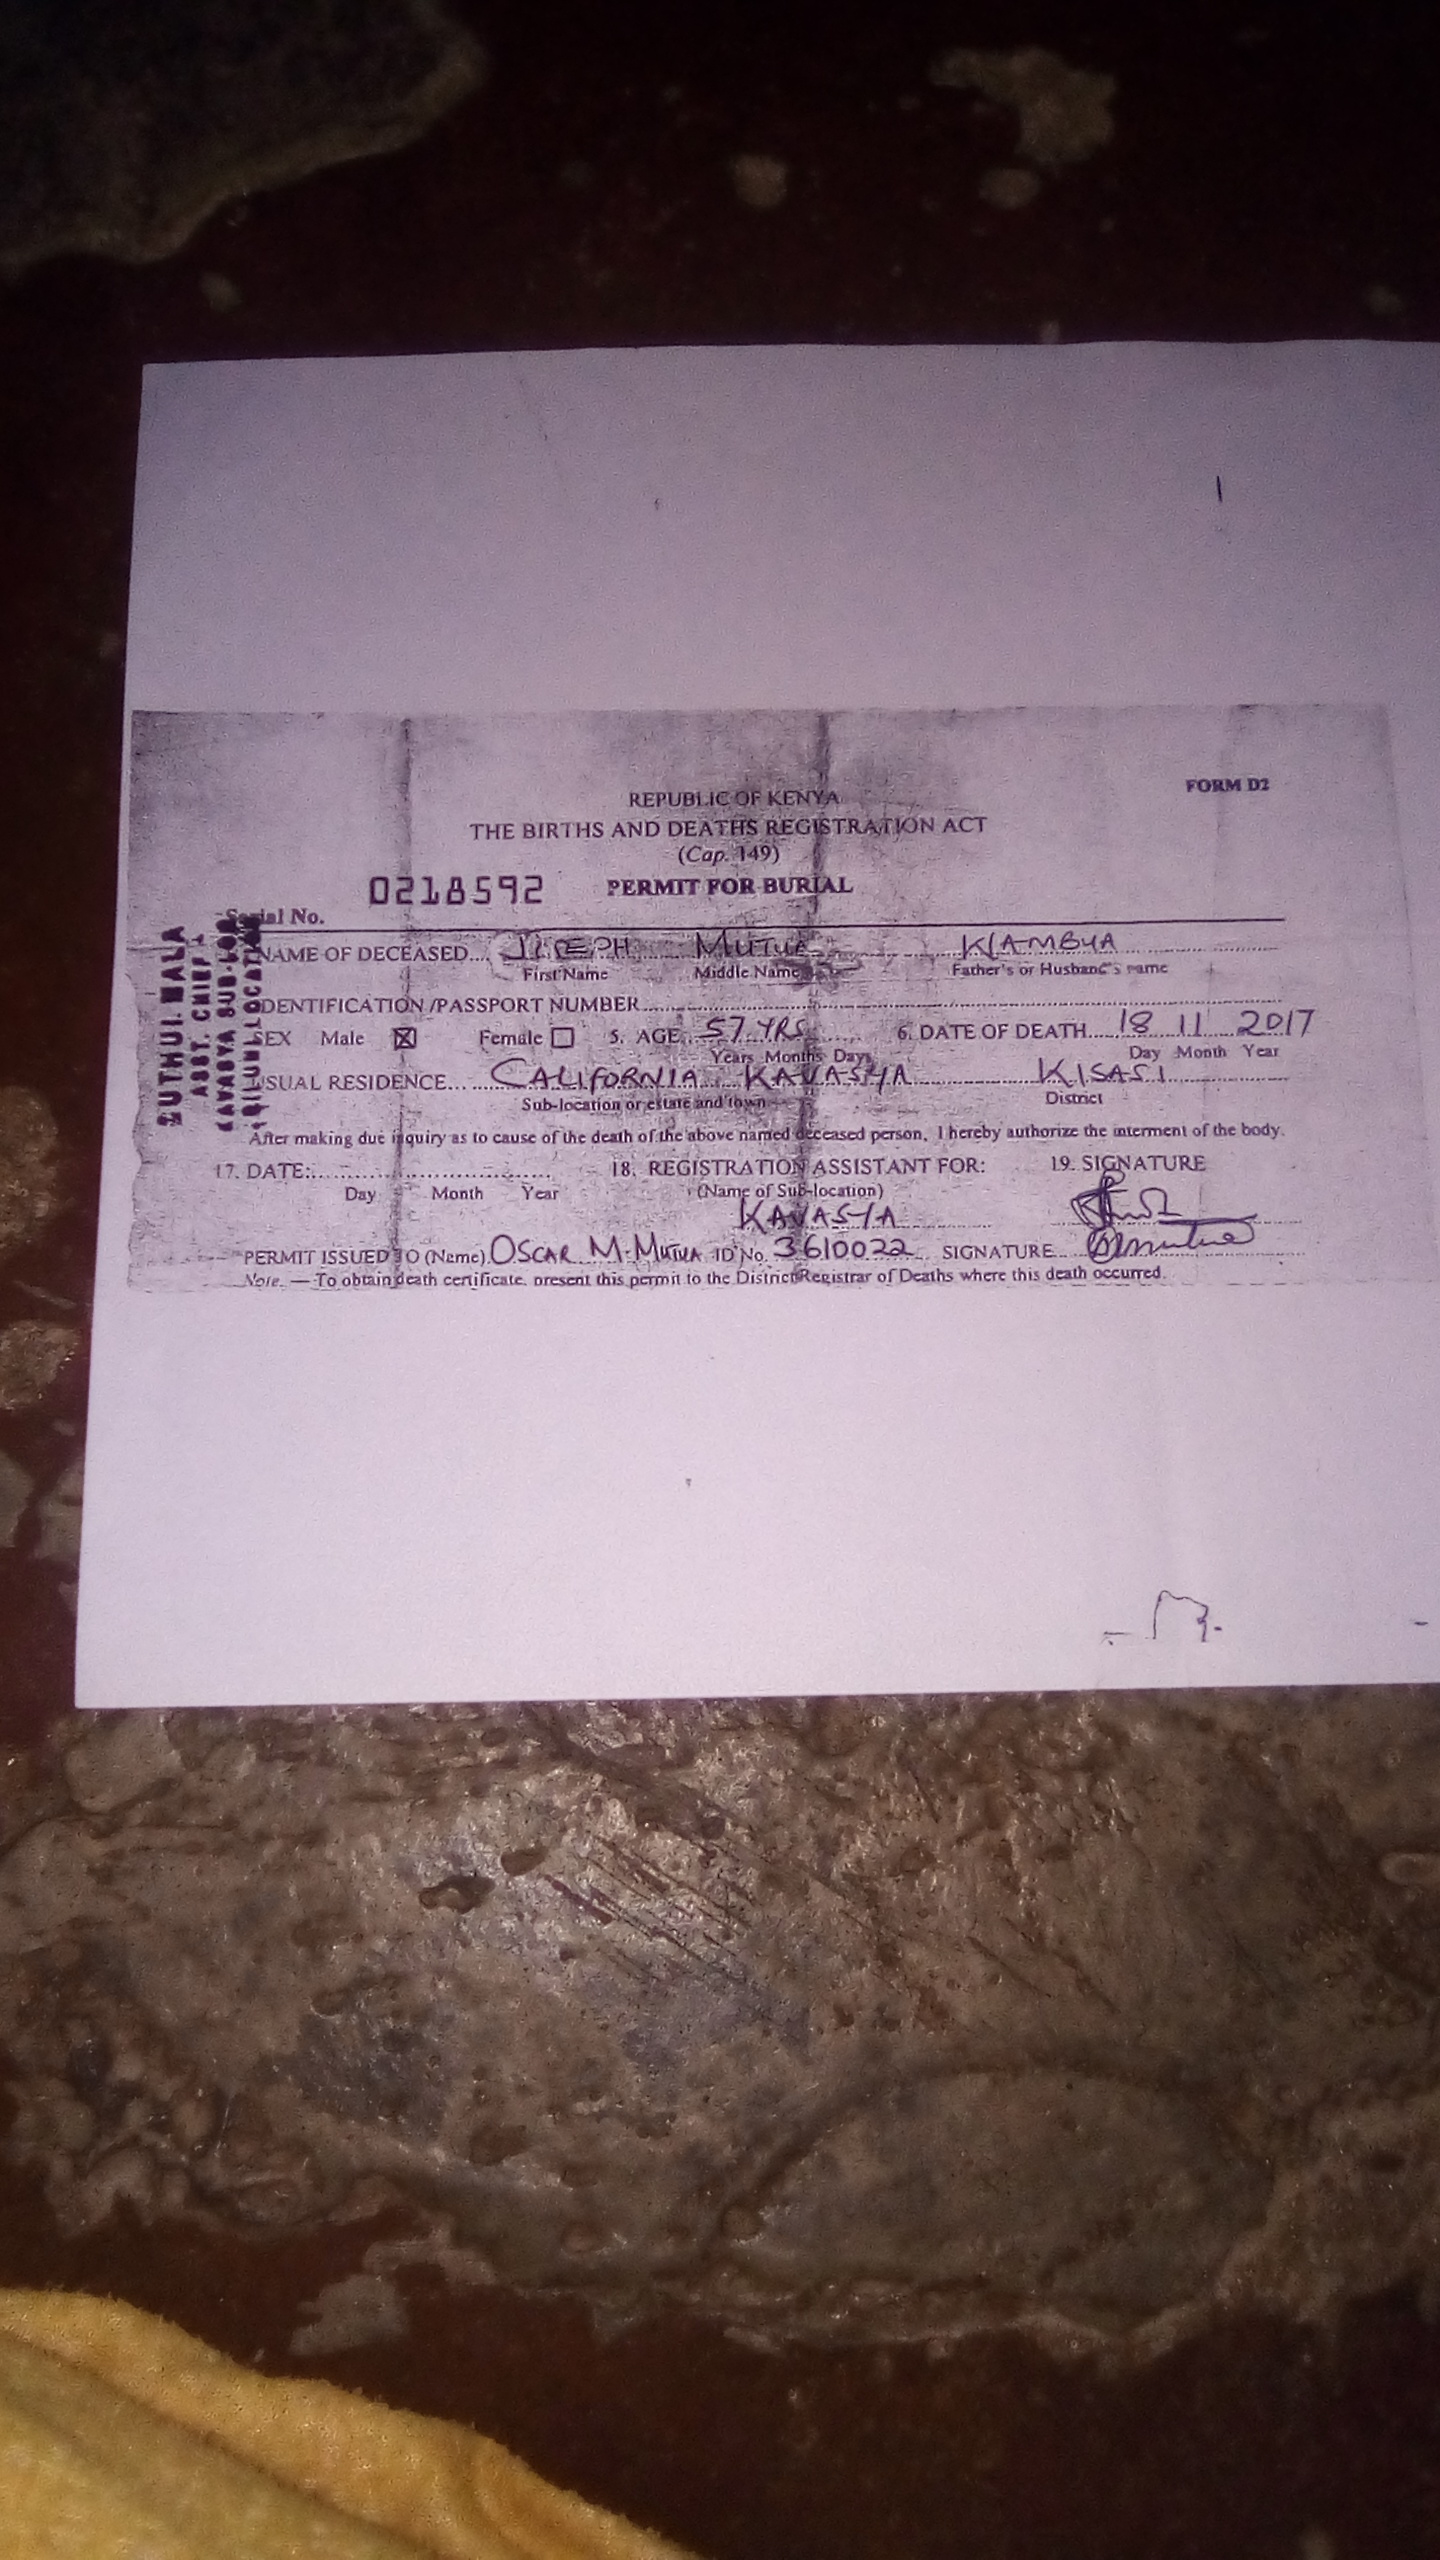 FORM D2
REPUBLIC OF KENYA
THE BIRTHS AND DEATHS REGISTRATION ACT
(Cap. 149)
0218592 PERMIT FOR BURIAL
Serial No.
NAME OF DECEASED... JOSEPH MUTUA KIAMBUA
First Name Middle Name Father's or Husband's name
IDENTIFICATION /PASSPORT NUMBER
SEX Male ☒ Female ☐ 5. AGE 57 YRS 6. DATE OF DEATH 18 11 2017
Years Months Days Day Month Year
USUAL RESIDENCE... CALIFORNIA KAVASYA KISASI
Sub-location or estate and town District
After making due inquiry as to cause of the death of the above named deceased person, I hereby authorize the interment of the body.
17. DATE: 18. REGISTRATION ASSISTANT FOR: 19. SIGNATURE
Day Month Year (Name of Sub-location)
KAVASYA
PERMIT ISSUED TO (Name) OSCAR M. MUTUA ID No. 3610022 SIGNATURE
Note. — To obtain death certificate, present this permit to the District Registrar of Deaths where this death occurred.
ASST. CHIEF
KAVASYA SUB-LOC